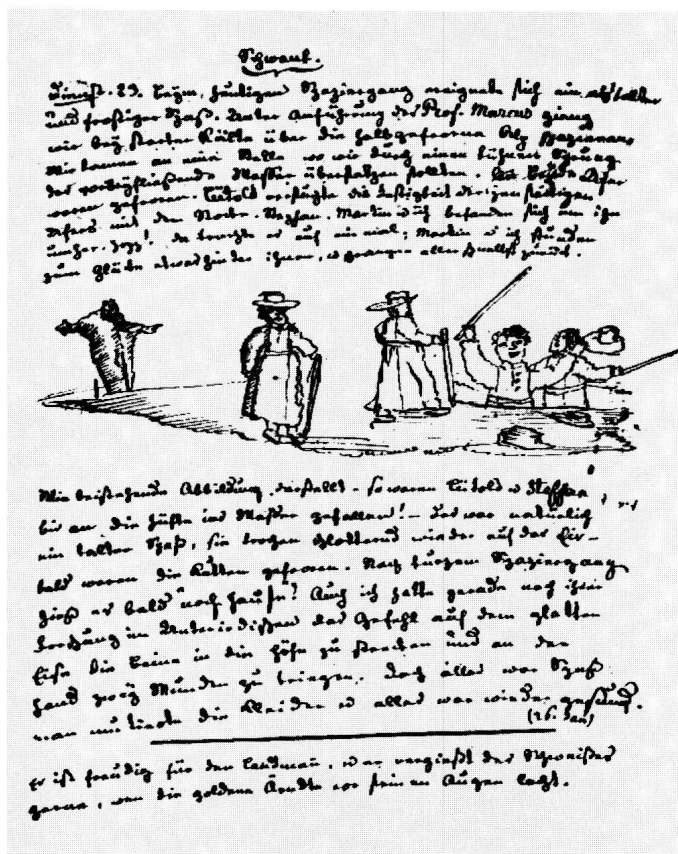 Schwank.
23. Beym heutigen Spaziergang ereignete sich ein
und frostiger Spaß. Unter Anführung des Prof. Marcus gieng
wir bey starker Kälte über die halbgefrorene spazieren
Wir kamen an eine Stelle wo wir durch einen kühnen Sprung
das vorbeyfließende Wasser übersetzen sollten. Die Ufer
waren gefroren. Leütold die Festigkeit des jenseitigen
Ufers mit den Martin u ich befanden sich um ihn
umher. da er auf einmal; Martin u ich stunden
zum Glücke etwas hinter ihnen, u sprangen aller zurück.
Wie beistehende Abbildung darstellt – so waren Leütold u Steffen
bis an die Hüfte ins Wasser gefallen! – Das war natürlich
ein kalter Spaß, sie krochen schlotternd wieder auf das Eis –
bald waren die Kutten gefroren. Nach kurzem Spaziergang
hieß es bald "nach Hause"! Auch ich hatte gerade nach ihrer
im Unterirdischen das auf dem glatten
Eise die Beine in die Höhe zu strecken und an der
Hand zwey Wunden zu kriegen. Doch alles war Spaß
man die Kleider u alles war wieder gesund.
(26. Jan)
Er ist freudig für den Landmann, u er vergießt den Schweiß
gerne, wen die goldene Ärndte vor seinen Augen lacht.